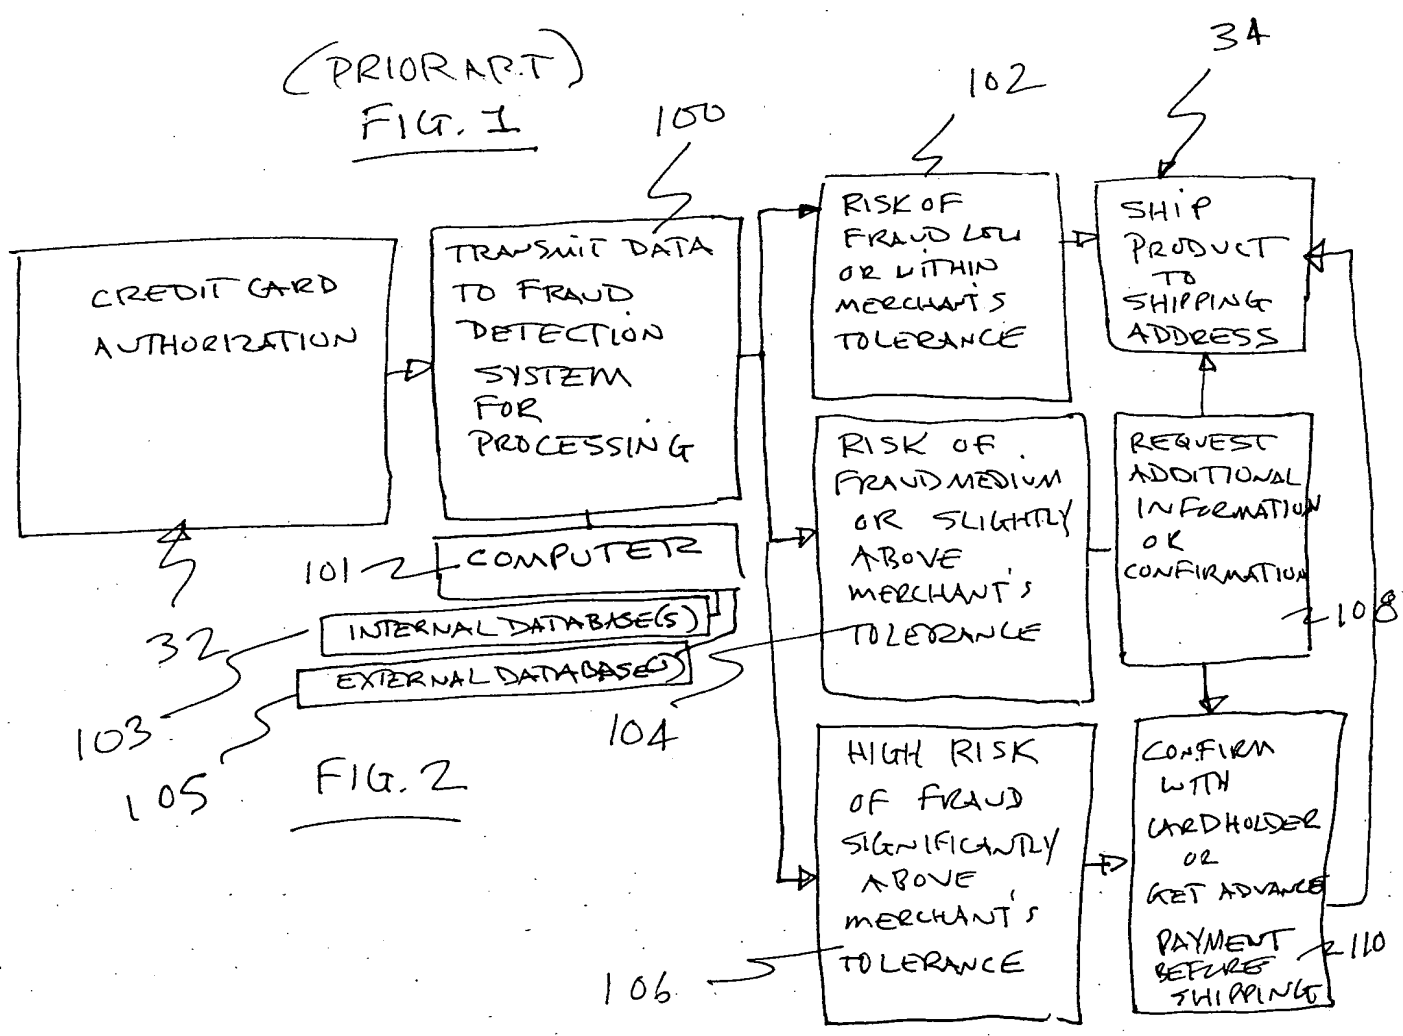 (PRIOR ART)
FIG. 1
100
102
34
CREDIT CARD
AUTHORIZATION
TRANSMIT DATA
TO FRAUD
DETECTION
SYSTEM
FOR
PROCESSING
RISK OF
FRAUD LOW
OR WITHIN
MERCHANT'S
TOLERANCE
SHIP
PRODUCT
TO
SHIPPING
ADDRESS
RISK OF
FRAUD MEDIUM
OR SLIGHTLY
ABOVE
MERCHANT'S
TOLERANCE
REQUEST
ADDITIONAL
INFORMATION
OR
CONFIRMATION
108
32
101
COMPUTER
INTERNAL DATABASE(S)
EXTERNAL DATABASE(S)
103
105
104
FIG. 2
HIGH RISK
OF FRAUD
SIGNIFICANTLY
ABOVE
MERCHANT'S
TOLERANCE
106
CONFIRM
WITH
CARDHOLDER
OR
GET ADVANCE
PAYMENT
BEFORE
SHIPPING
110